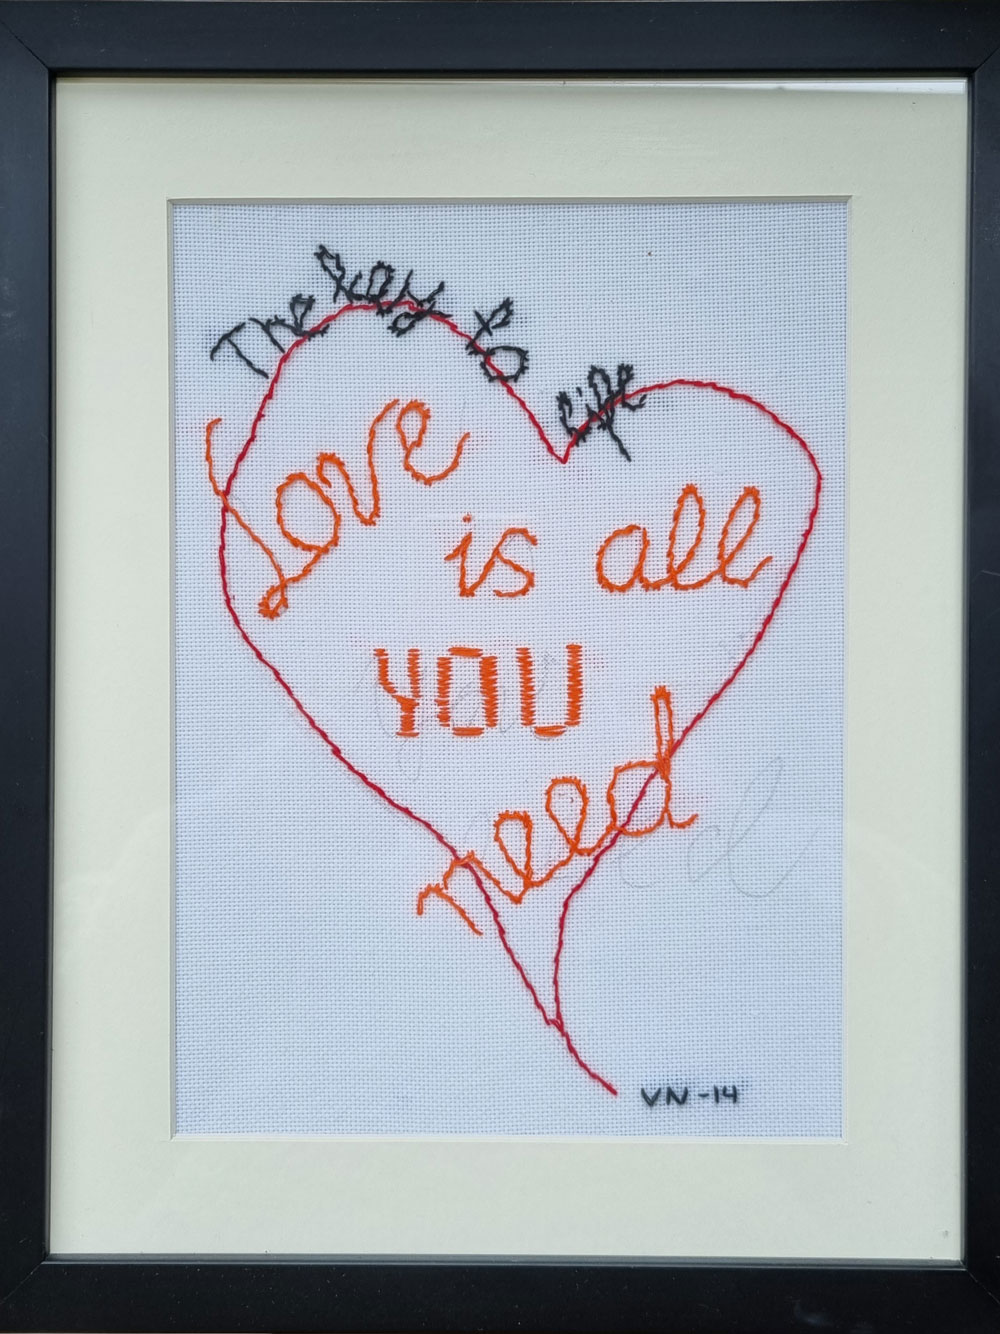 The key to life
Love
is all
YOU
need
VN-14